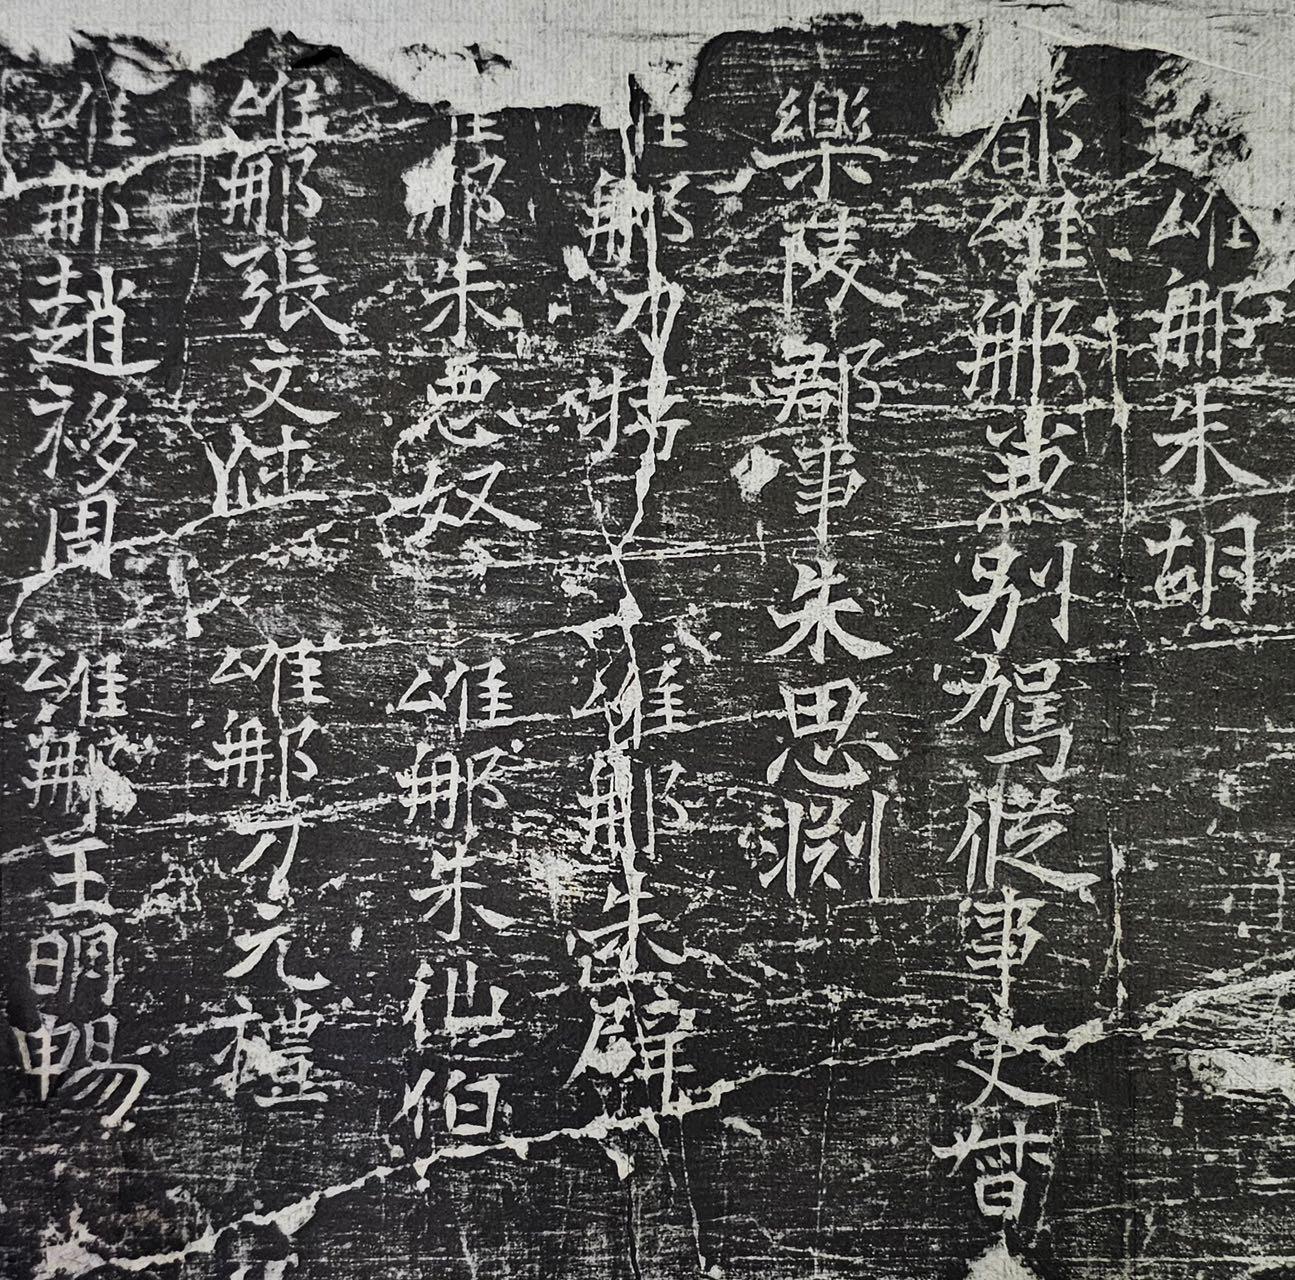 維那朱胡
都維那兼別駕從事史
樂陵郡事朱思淵
維那刀 維那朱
維那朱惡奴 維那朱仙伯
維那張文 維那刀元禮
維那趙移周 維那王明暢